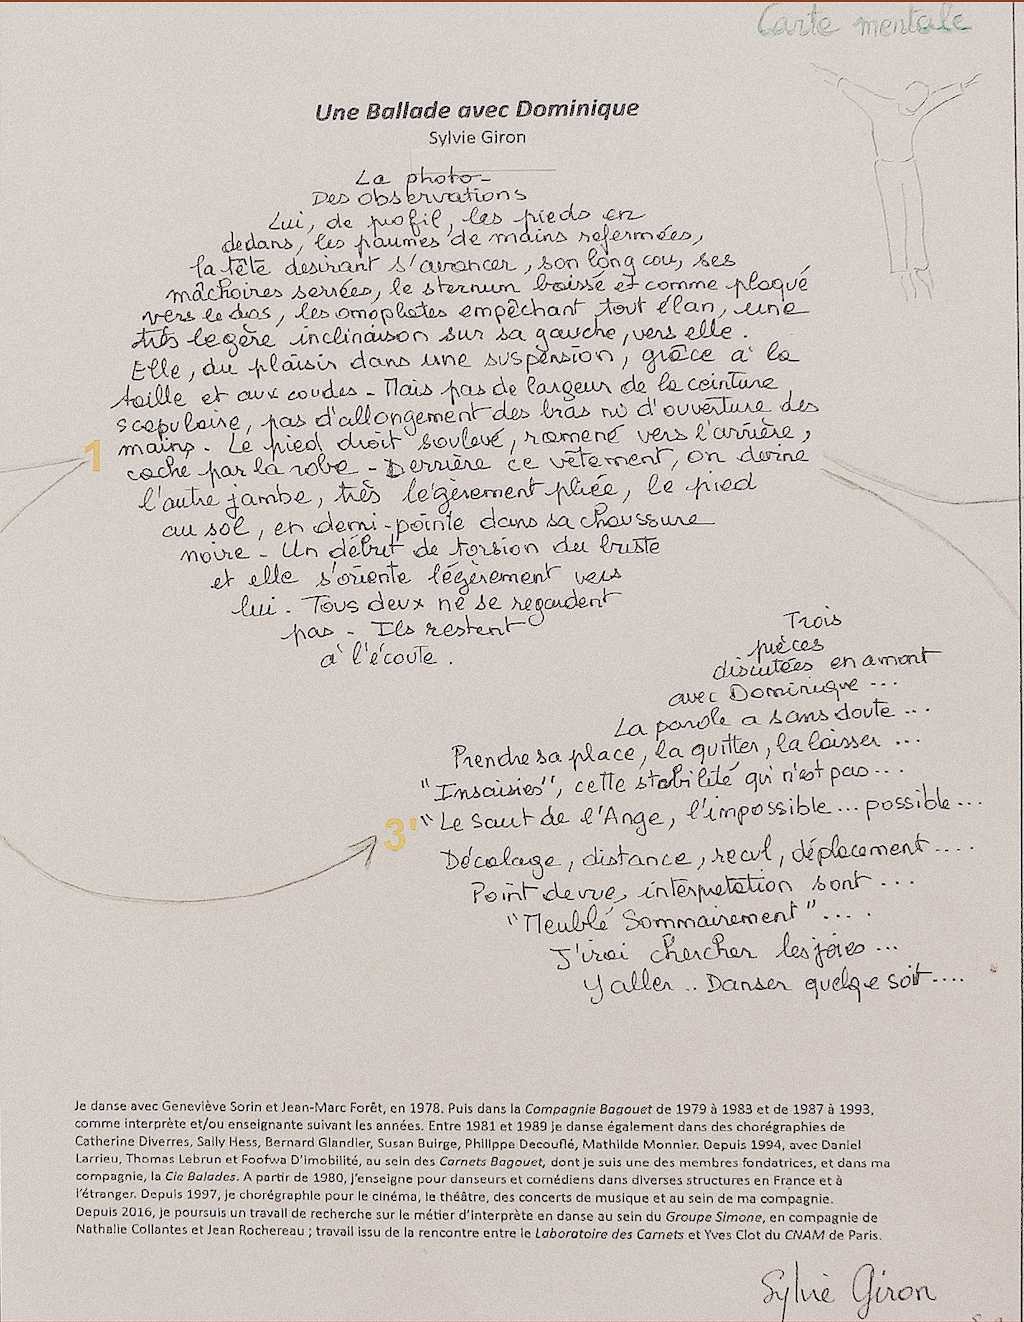 Carte mentale
Une Ballade avec Dominique
Sylvie Giron
La photo -
Des observations
Lui, de profil, les pieds en
dedans, les paumes de mains refermées,
la tête désirant s'avancer, son long cou, ses
mâchoires serrées, le sternum baissé et comme plaqué
vers le dos, les omoplates empêchant tout élan, une
très légère inclinaison sur sa gauche, vers elle.
Elle, du plaisir dans une suspension, grâce à la
taille et aux coudes - Mais pas de largeur de la ceinture
scapulaire, pas d'allongement des bras ni d'ouverture des
mains. Le pied droit soulevé, ramené vers l'arrière,
1
caché par la robe - Derrière ce vêtement, on devine
l'autre jambe, très légèrement pliée, le pied
au sol, en demi-pointe dans sa chaussure
noire - Un début de torsion du buste
et elle s'oriente légèrement vers
lui. Tous deux ne se regardent
pas - Ils restent
à l'écoute.
Trois
pièces
discutées en amont
avec Dominique ...
La parole a sans doute ...
Prendre sa place, la quitter, la laisser ...
"Insaisies", cette stabilité qui n'est pas ...
3' "Le Saut de l'Ange, l'impossible ... possible ...
Décalage, distance, recul, déplacement ....
Point de vue, interprétation sont ...
"Meublé Sommairement" ... .
J'irai chercher les joies ...
Y aller .. Danser quelqe soit ....
Je danse avec Geneviève Sorin et Jean-Marc Forêt, en 1978. Puis dans la Compagnie Bagouet de 1979 à 1983 et de 1987 à 1993,
comme interprète et/ou enseignante suivant les années. Entre 1981 et 1989 je danse également dans des chorégraphies de
Catherine Diverres, Sally Hess, Bernard Glandier, Susan Buirge, Philippe Decouflé, Mathilde Monnier. Depuis 1994, avec Daniel
Larrieu, Thomas Lebrun et Foofwa D'imobilité, au sein des Carnets Bagouet, dont je suis une des membres fondatrices, et dans ma
compagnie, la Cie Balades. A partir de 1980, j'enseigne pour danseurs et comédiens dans diverses structures en France et à
l'étranger. Depuis 1997, je chorégraphie pour le cinéma, le théâtre, des concerts de musique et au sein de ma compagnie.
Depuis 2016, je poursuis un travail de recherche sur le métier d'interprète en danse au sein du Groupe Simone, en compagnie de
Nathalie Collantes et Jean Rochereau ; travail issu de la rencontre entre le Laboratoire des Carnets et Yves Clot du CNAM de Paris.
Sylvie Giron